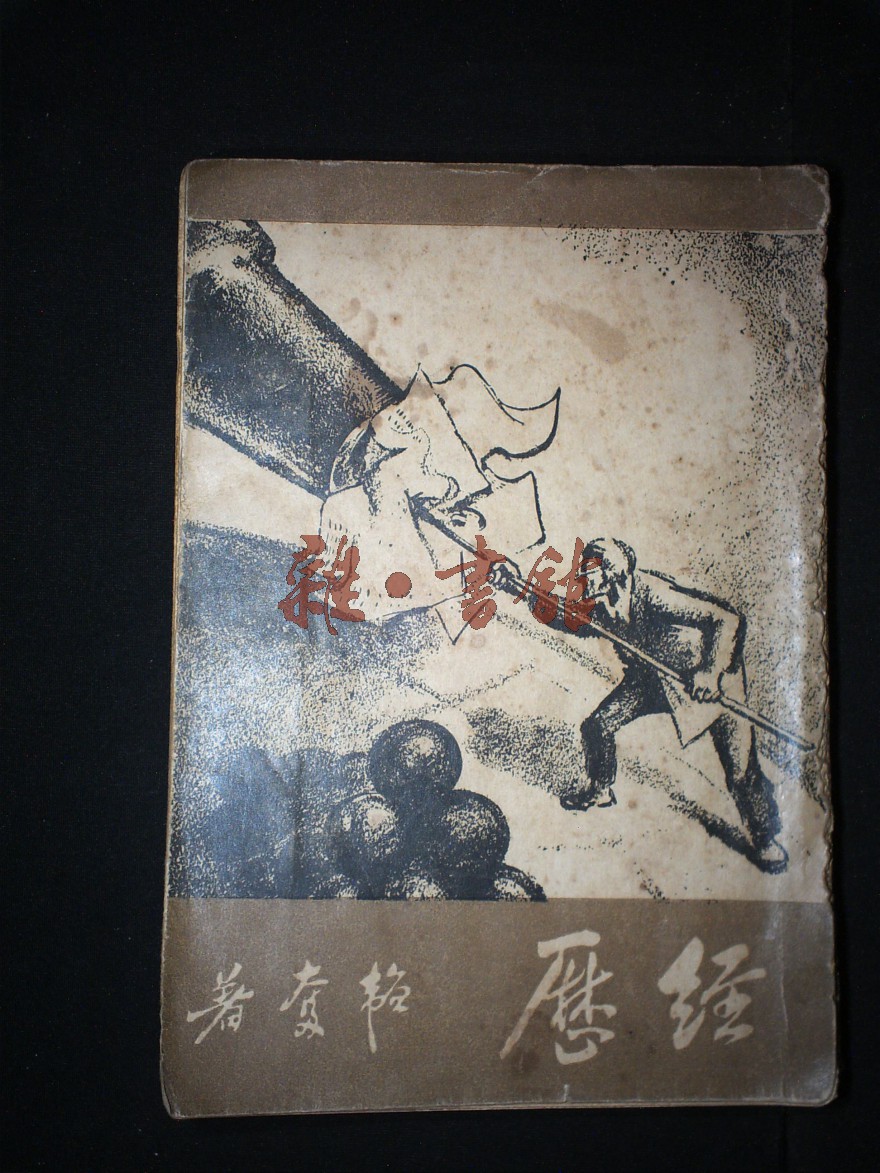 雜·書館
經歷 韜奮著